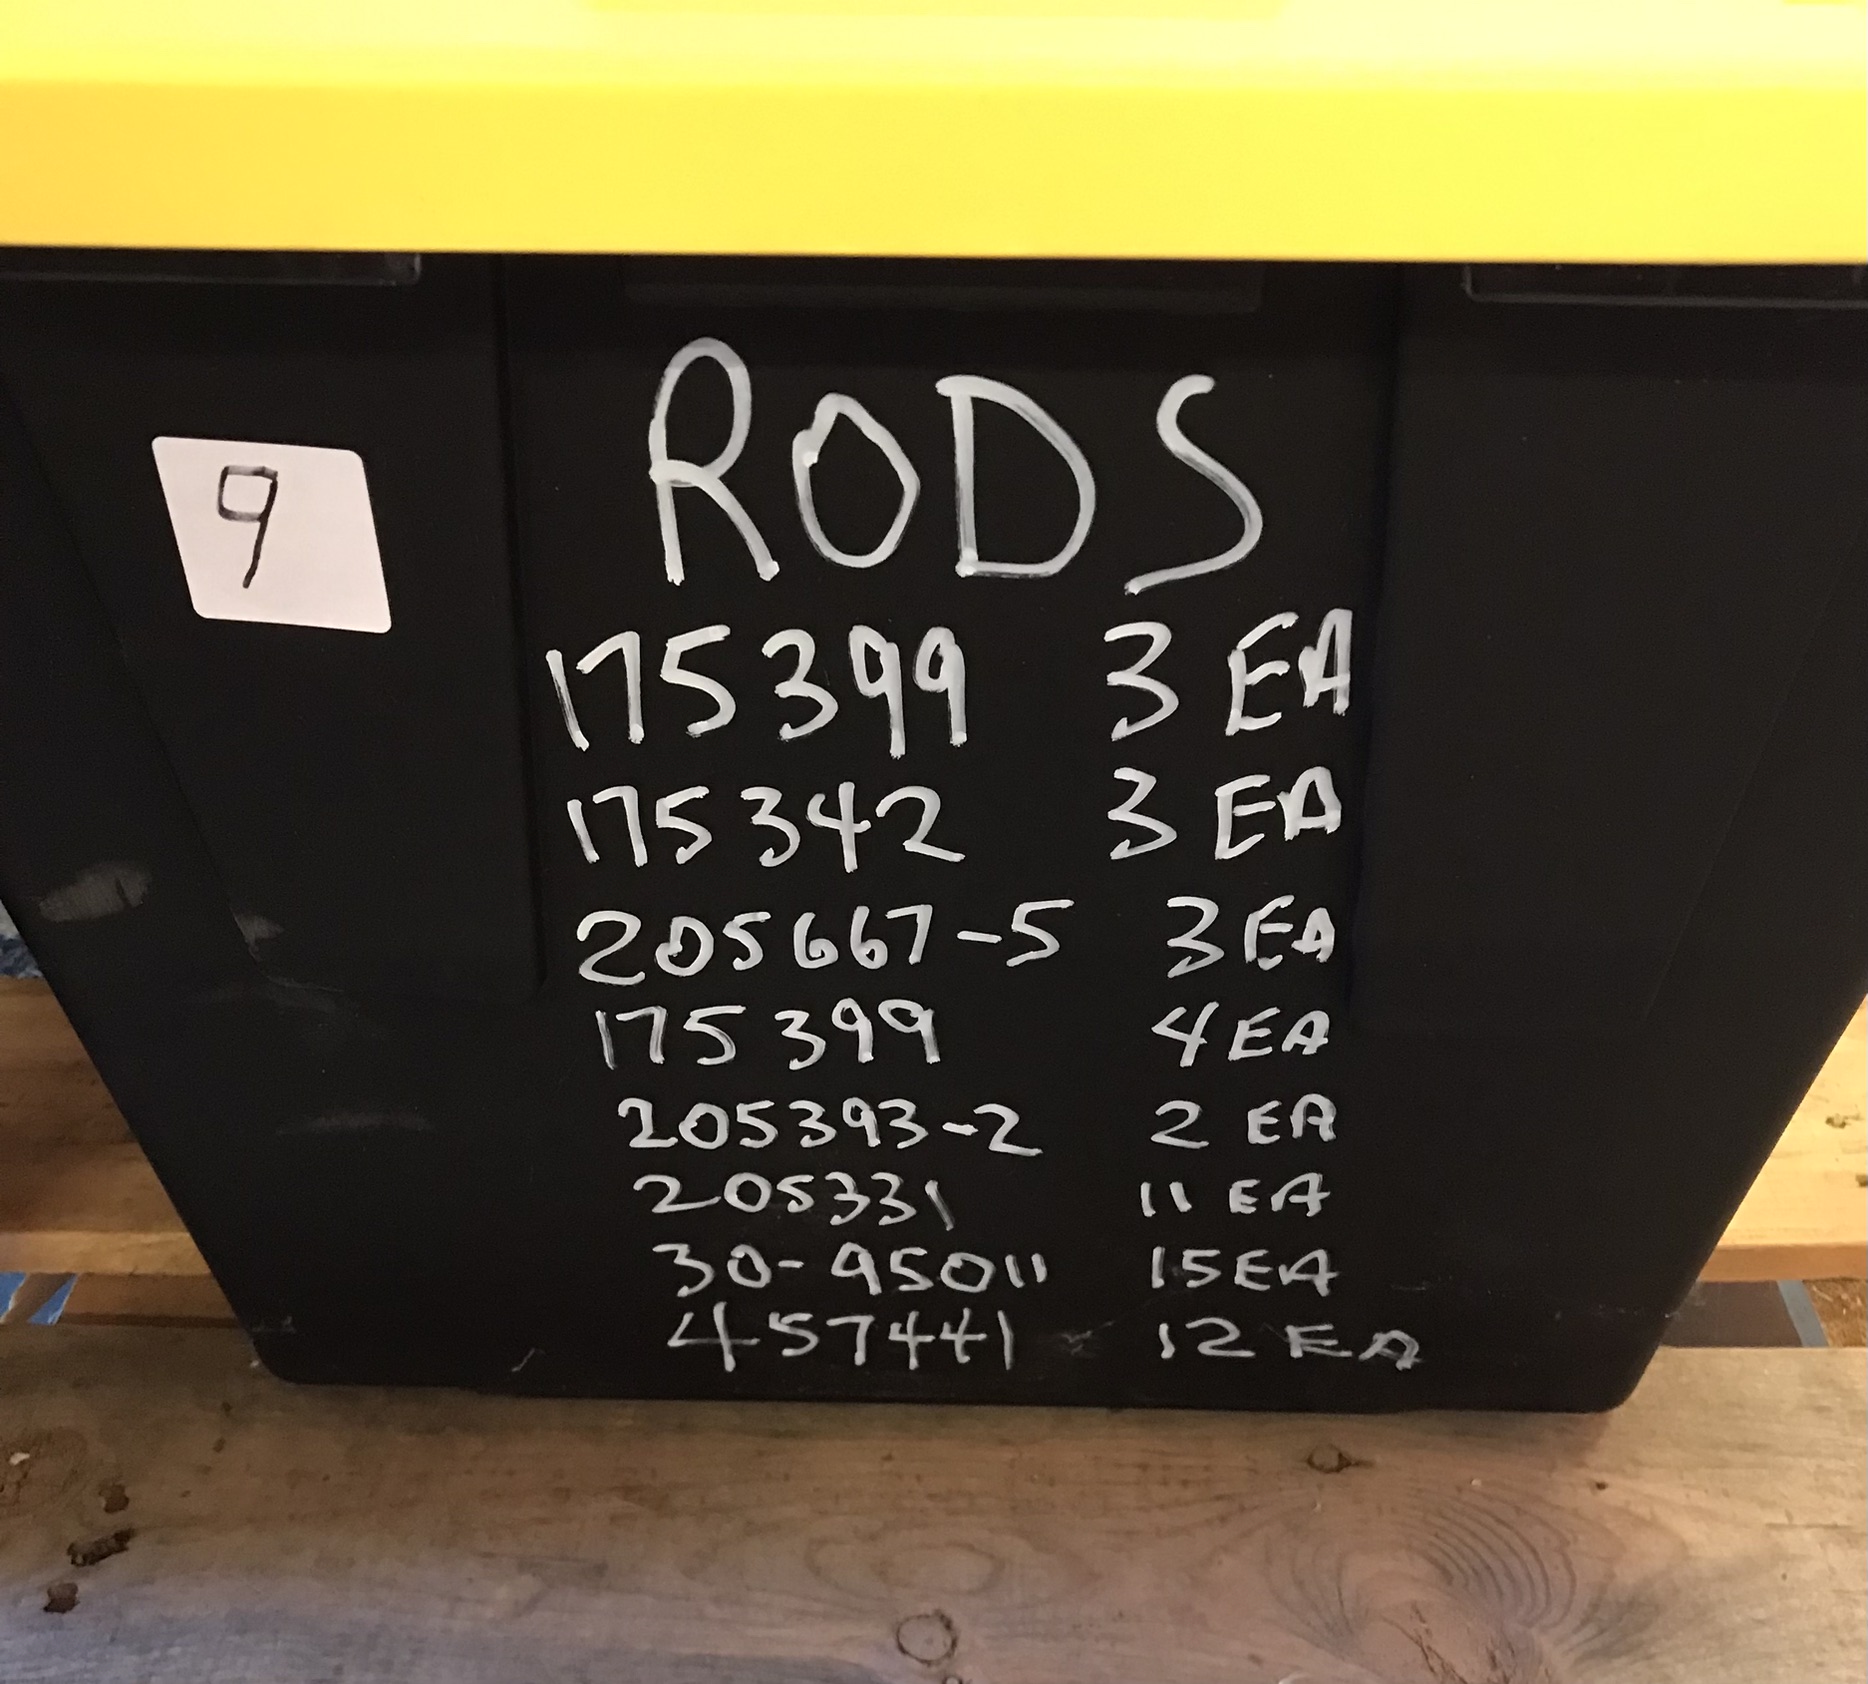 RODS
9
175399 3 EA
175342 3 EA
205667-5 3 EA
175399 4 EA
205393-2 2 EA
205331 11 EA
30-95011 15 EA
457441 12 EA